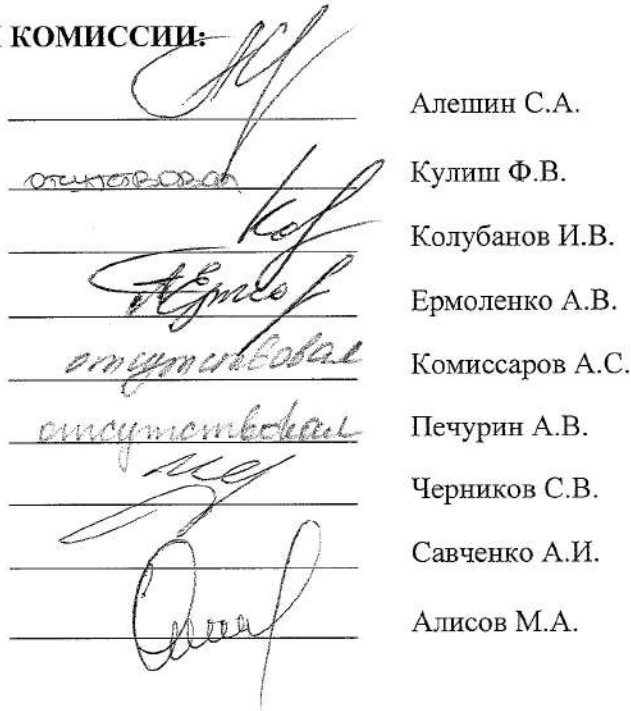 КОМИССИИ:
Алешин С.А.
отсутствовал Кулиш Ф.В.
Колубанов И.В.
Ермоленко А.В.
отсутствовал Комиссаров А.С.
отсутствовал Печурин А.В.
Черников С.В.
Савченко А.И.
Алисов М.А.